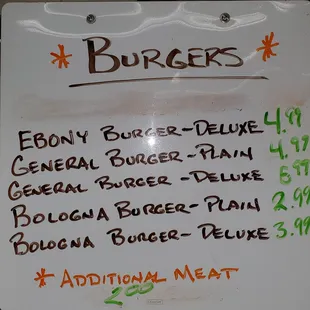 * BURGERS *
EBONY BURGER-DELUXE 4.99
GENERAL BURGER-PLAIN 4.99
GENERAL BURGER-DELUXE 5.99
BOLOGNA BURGER-PLAIN 2.99
BOLOGNA BURGER-DELUXE 3.99
* ADDITIONAL MEAT
2.00